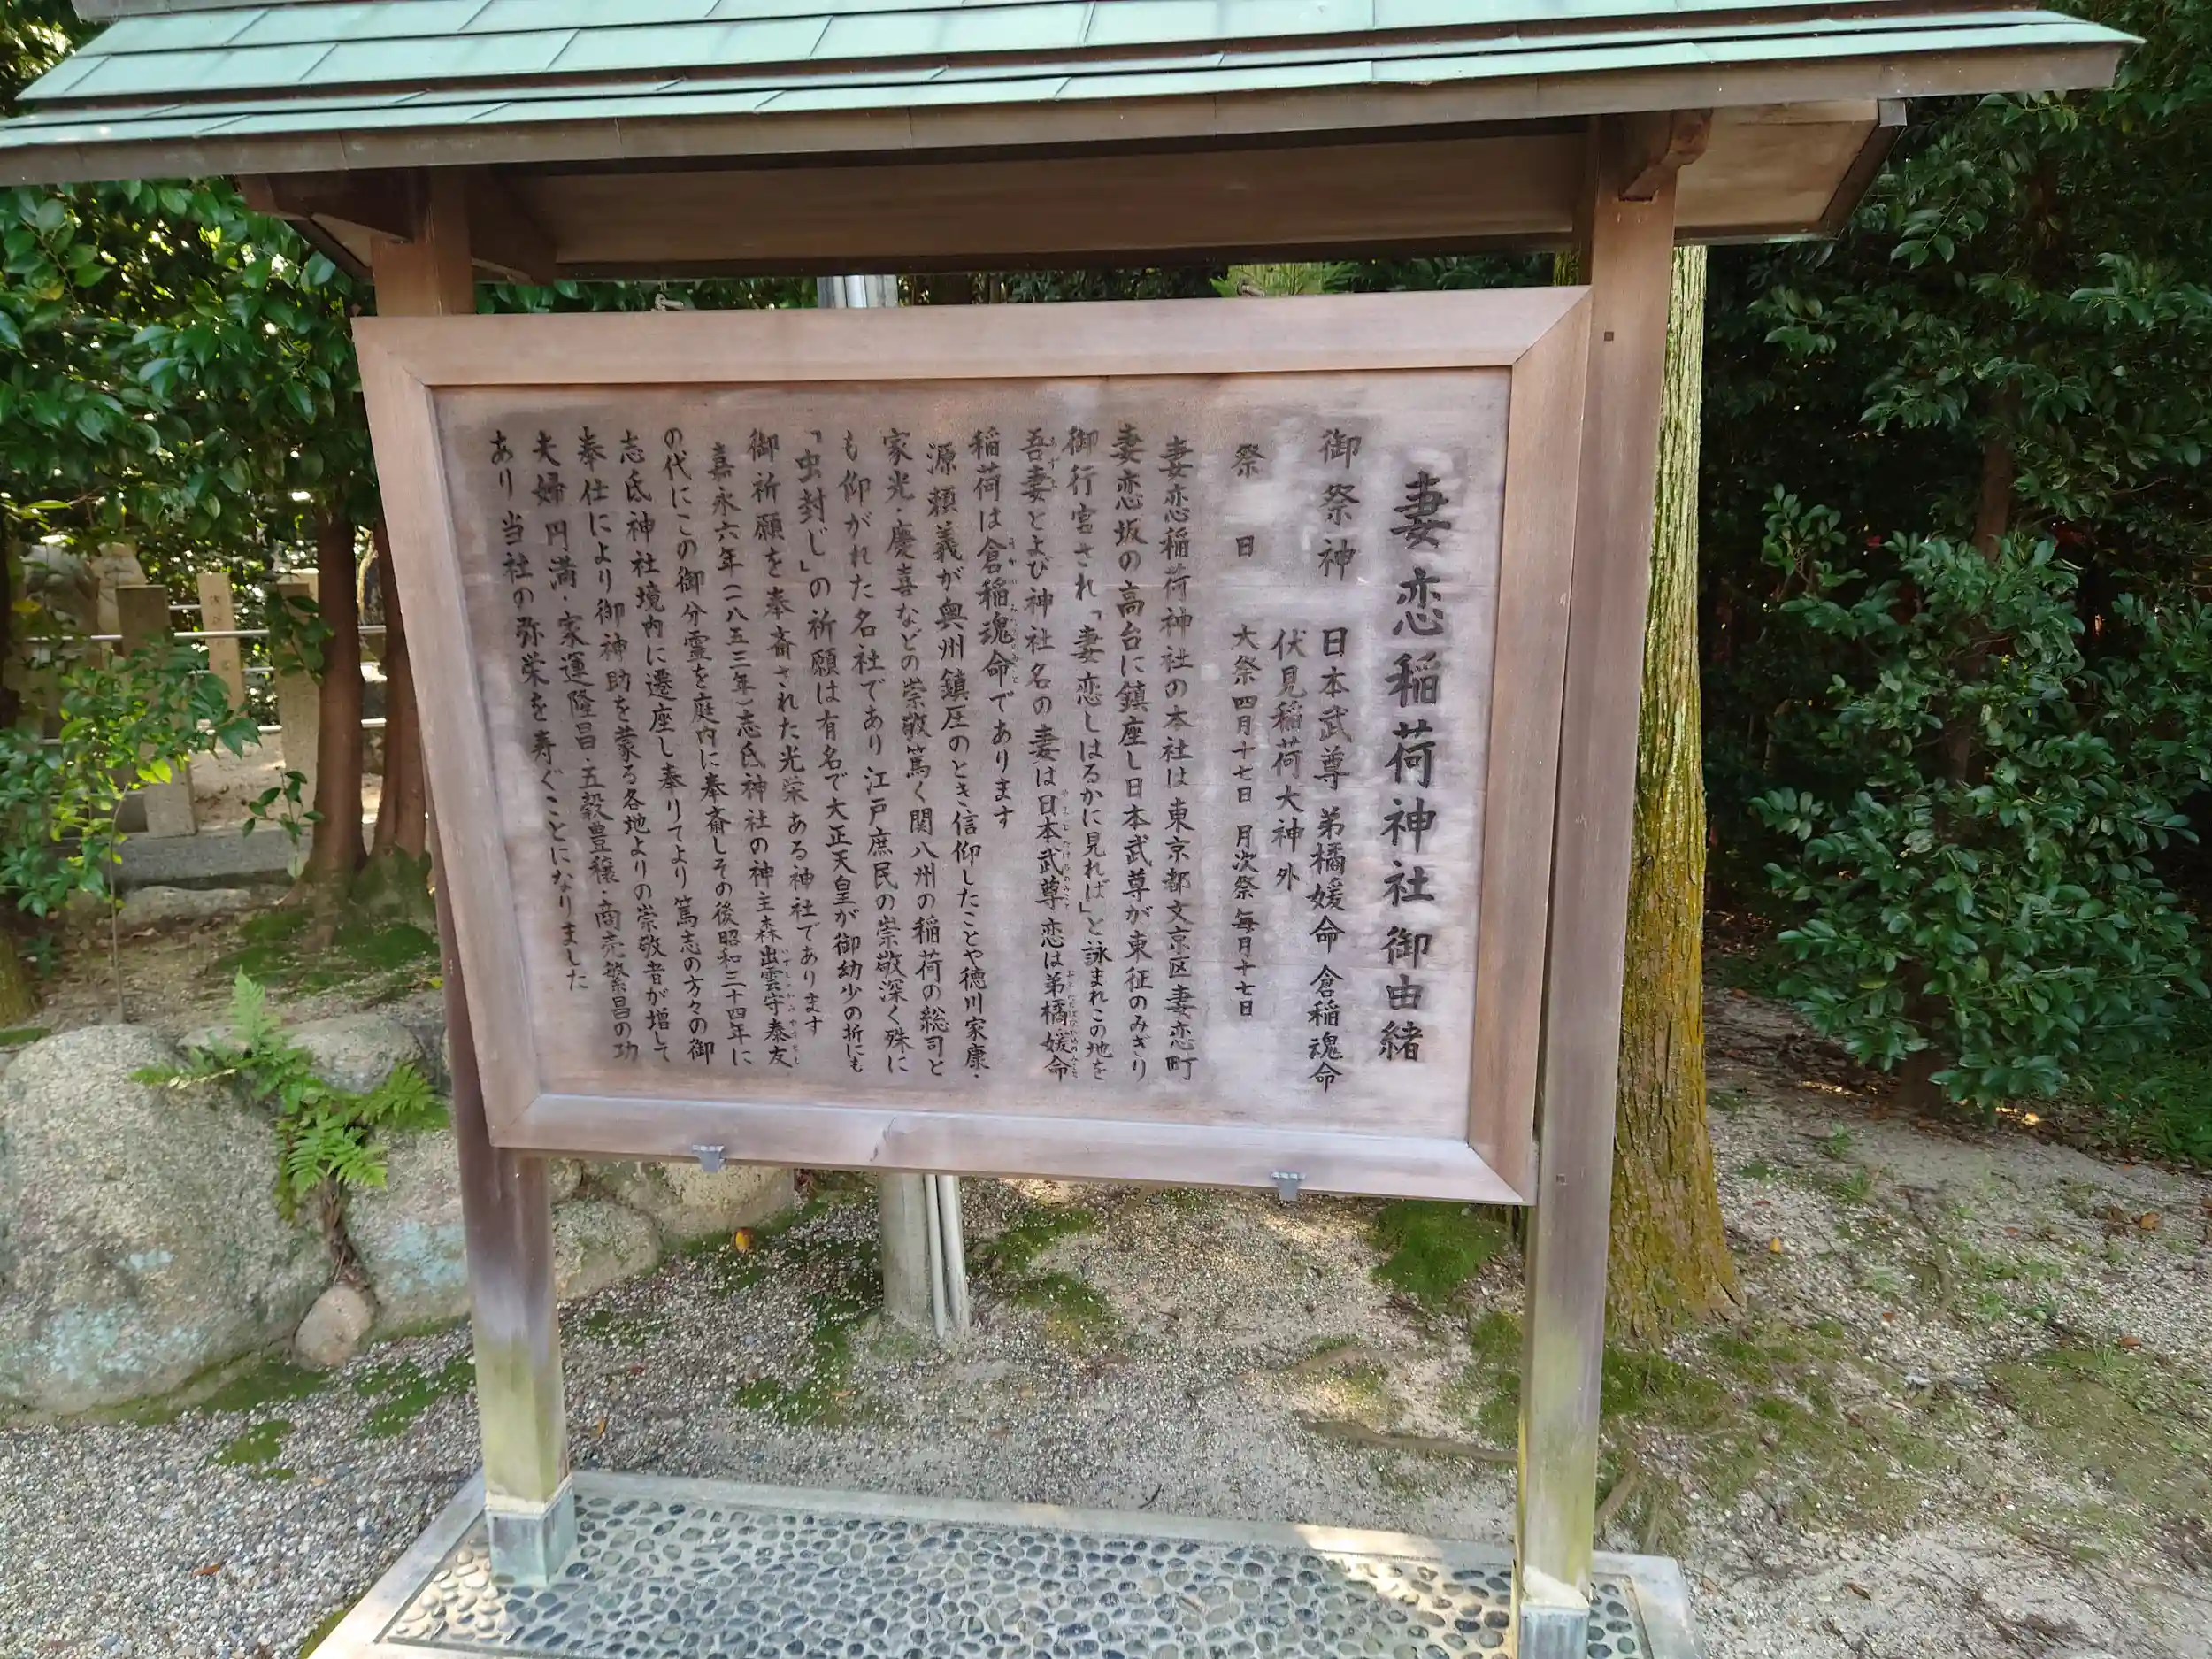 妻恋稲荷神社御由緒
御祭神 日本武尊 弟橘媛命 倉稲魂命
伏見稲荷大神外
祭日 大祭四月十七日 月次祭毎月十七日
妻恋稲荷神社の本社は東京都文京区妻恋町
妻恋坂の高台に鎮座し日本武尊が東征のみぎり
御行宮され「妻恋しはるかに見れば」と詠まれこの地を
吾妻とよび神社名の妻は日本武尊恋は弟橘媛命
稲荷は倉稲魂命であります
源頼義が奥州鎮圧のとき信仰したことや徳川家康・
家光・慶喜などの崇敬篤く関八州の稲荷の総司と
も仰がれた名社であり江戸庶民の崇敬深く殊に
「虫封じ」の祈願は有名で大正天皇が御幼少の折にも
御祈願を奉斎された光栄ある神社であります
嘉永六年(一八五三年)志氐神社の神主森出雲守泰友
の代にこの御分霊を庭内に奉斎しその後昭和三十四年に
志氐神社境内に遷座し奉りてより篤志の方々の御
奉仕により御神助を蒙る各地よりの崇敬者が増して
夫婦円満・家運隆昌・五穀豊穣・商売繁昌の功
あり当社の弥栄を寿ぐことになりました